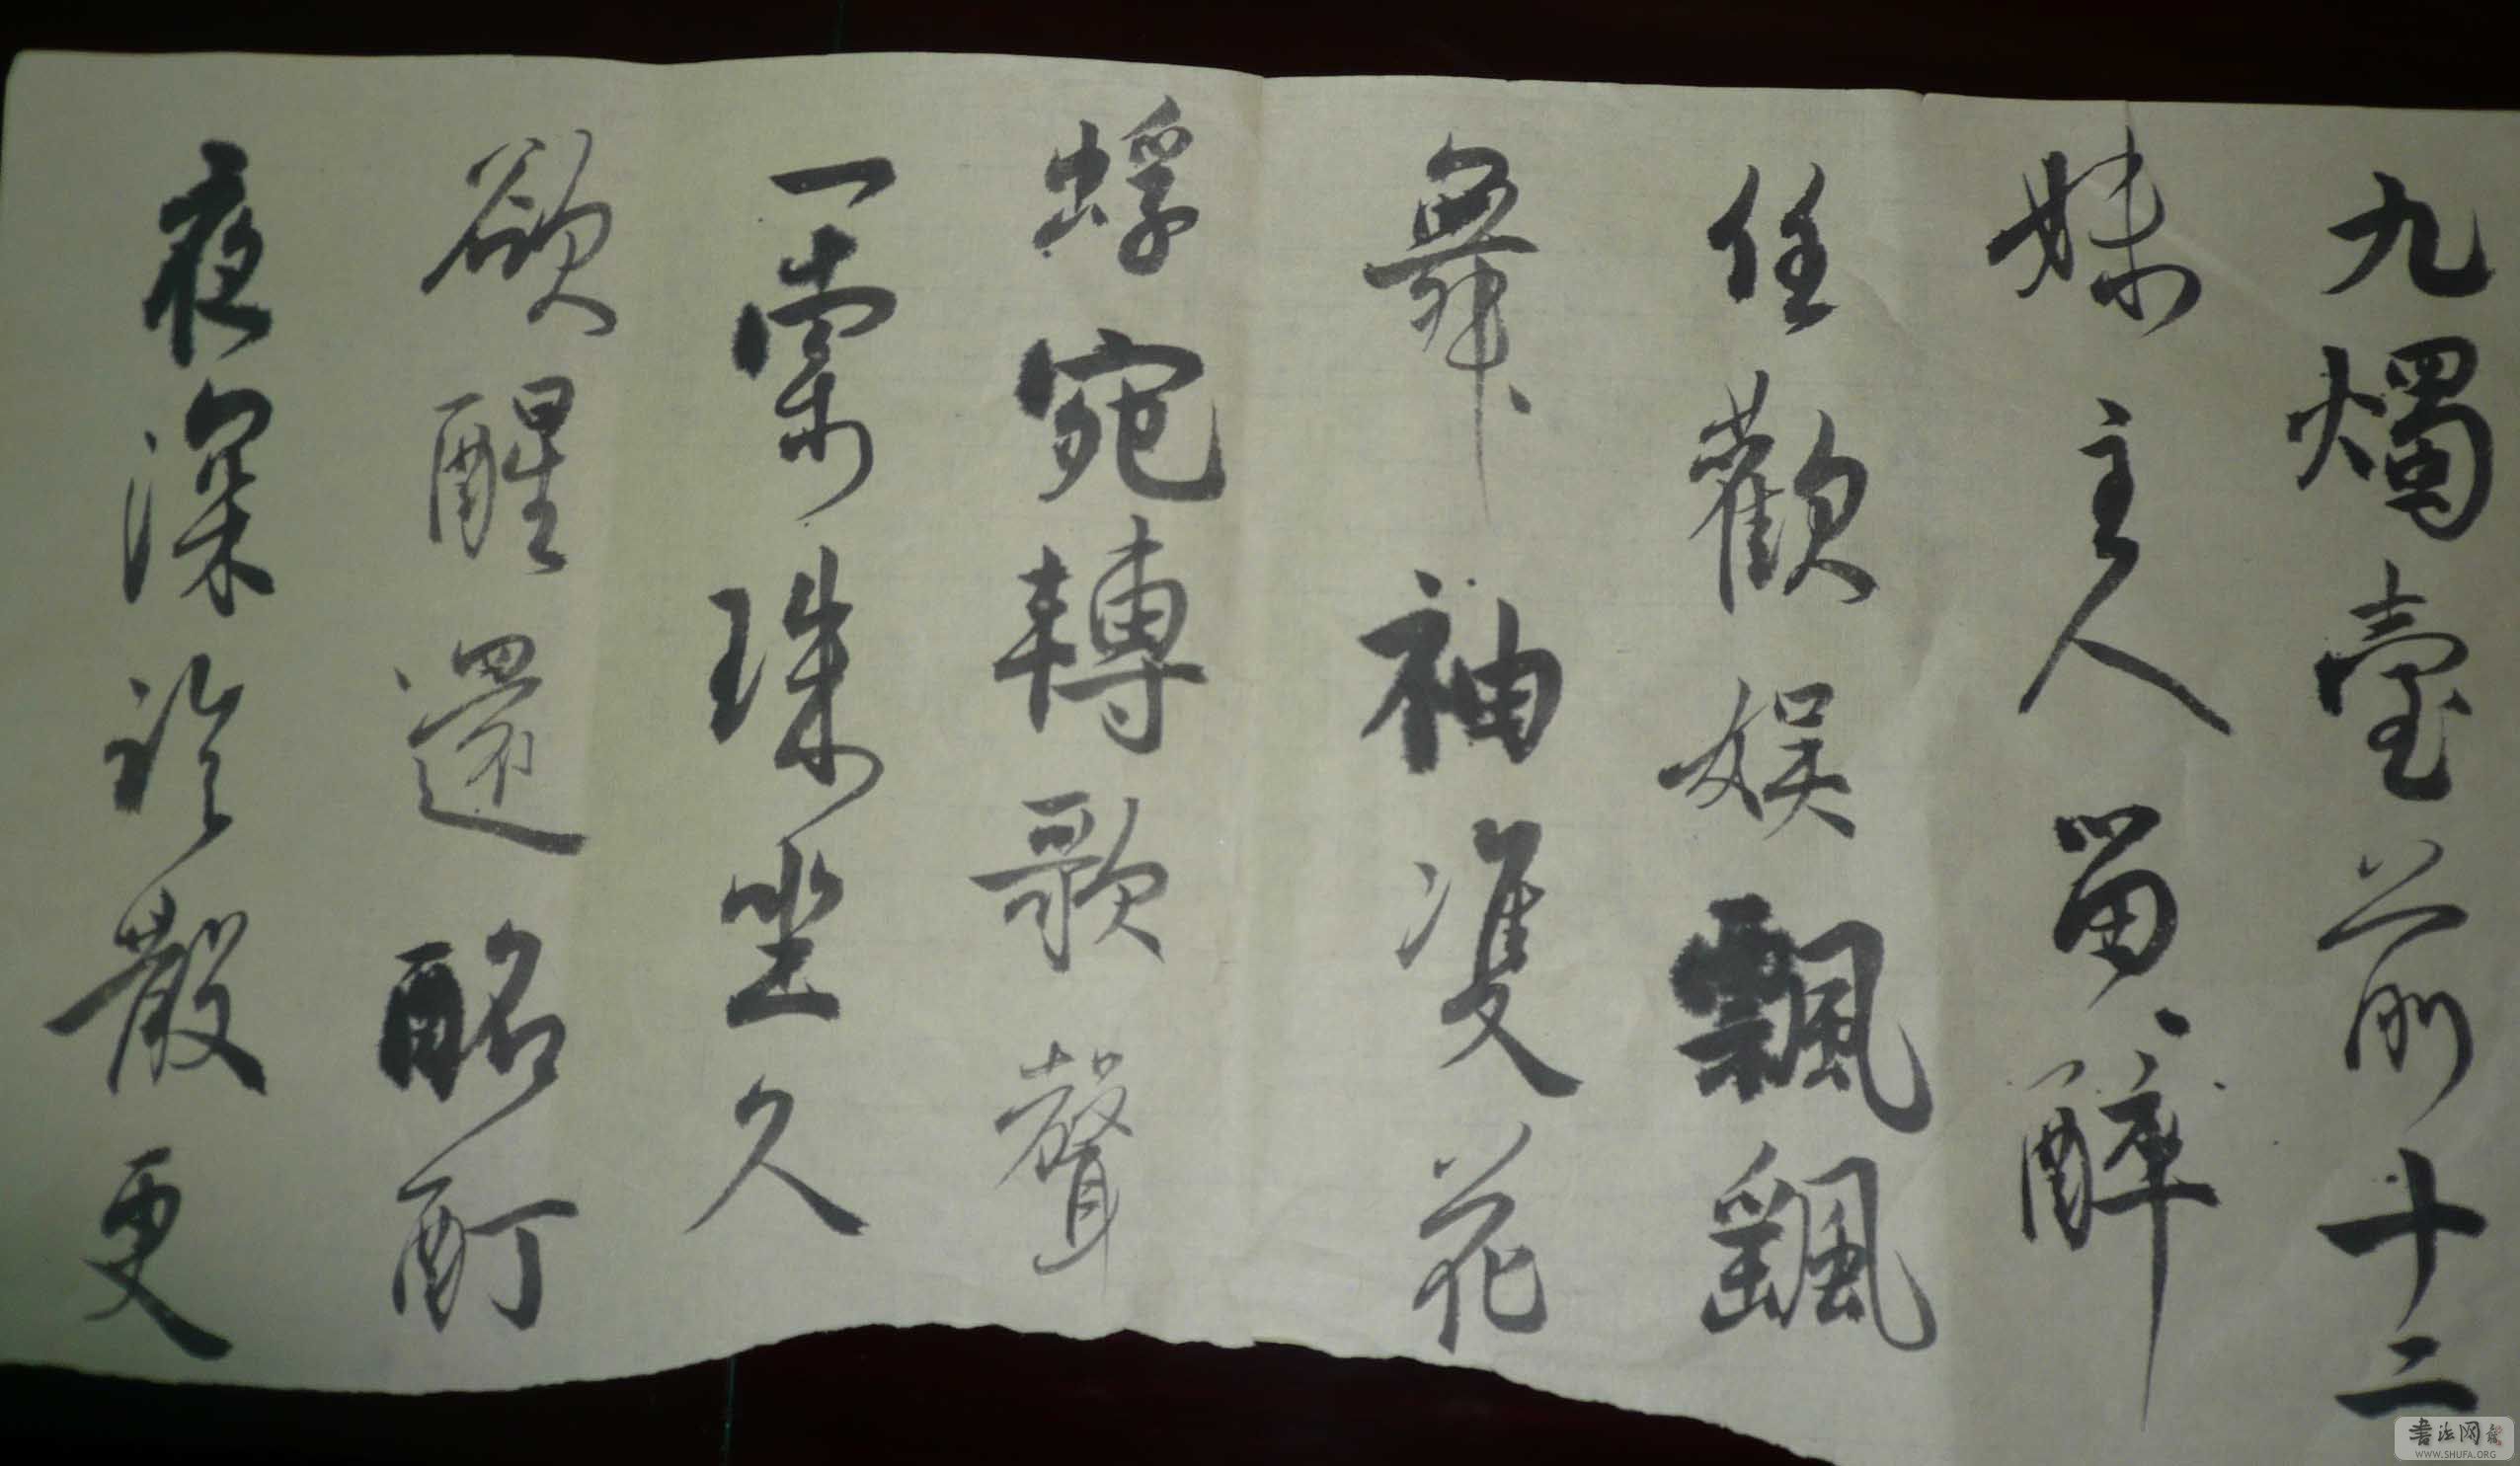 九燭臺前十二
姝主人留醉
任歡娛飄颻
舞袖雙飛
蜉宛轉歌聲
一索珠坐久
欲醒還酩酊
夜深臨散更
书法网
WWW.SHUFA.ORG